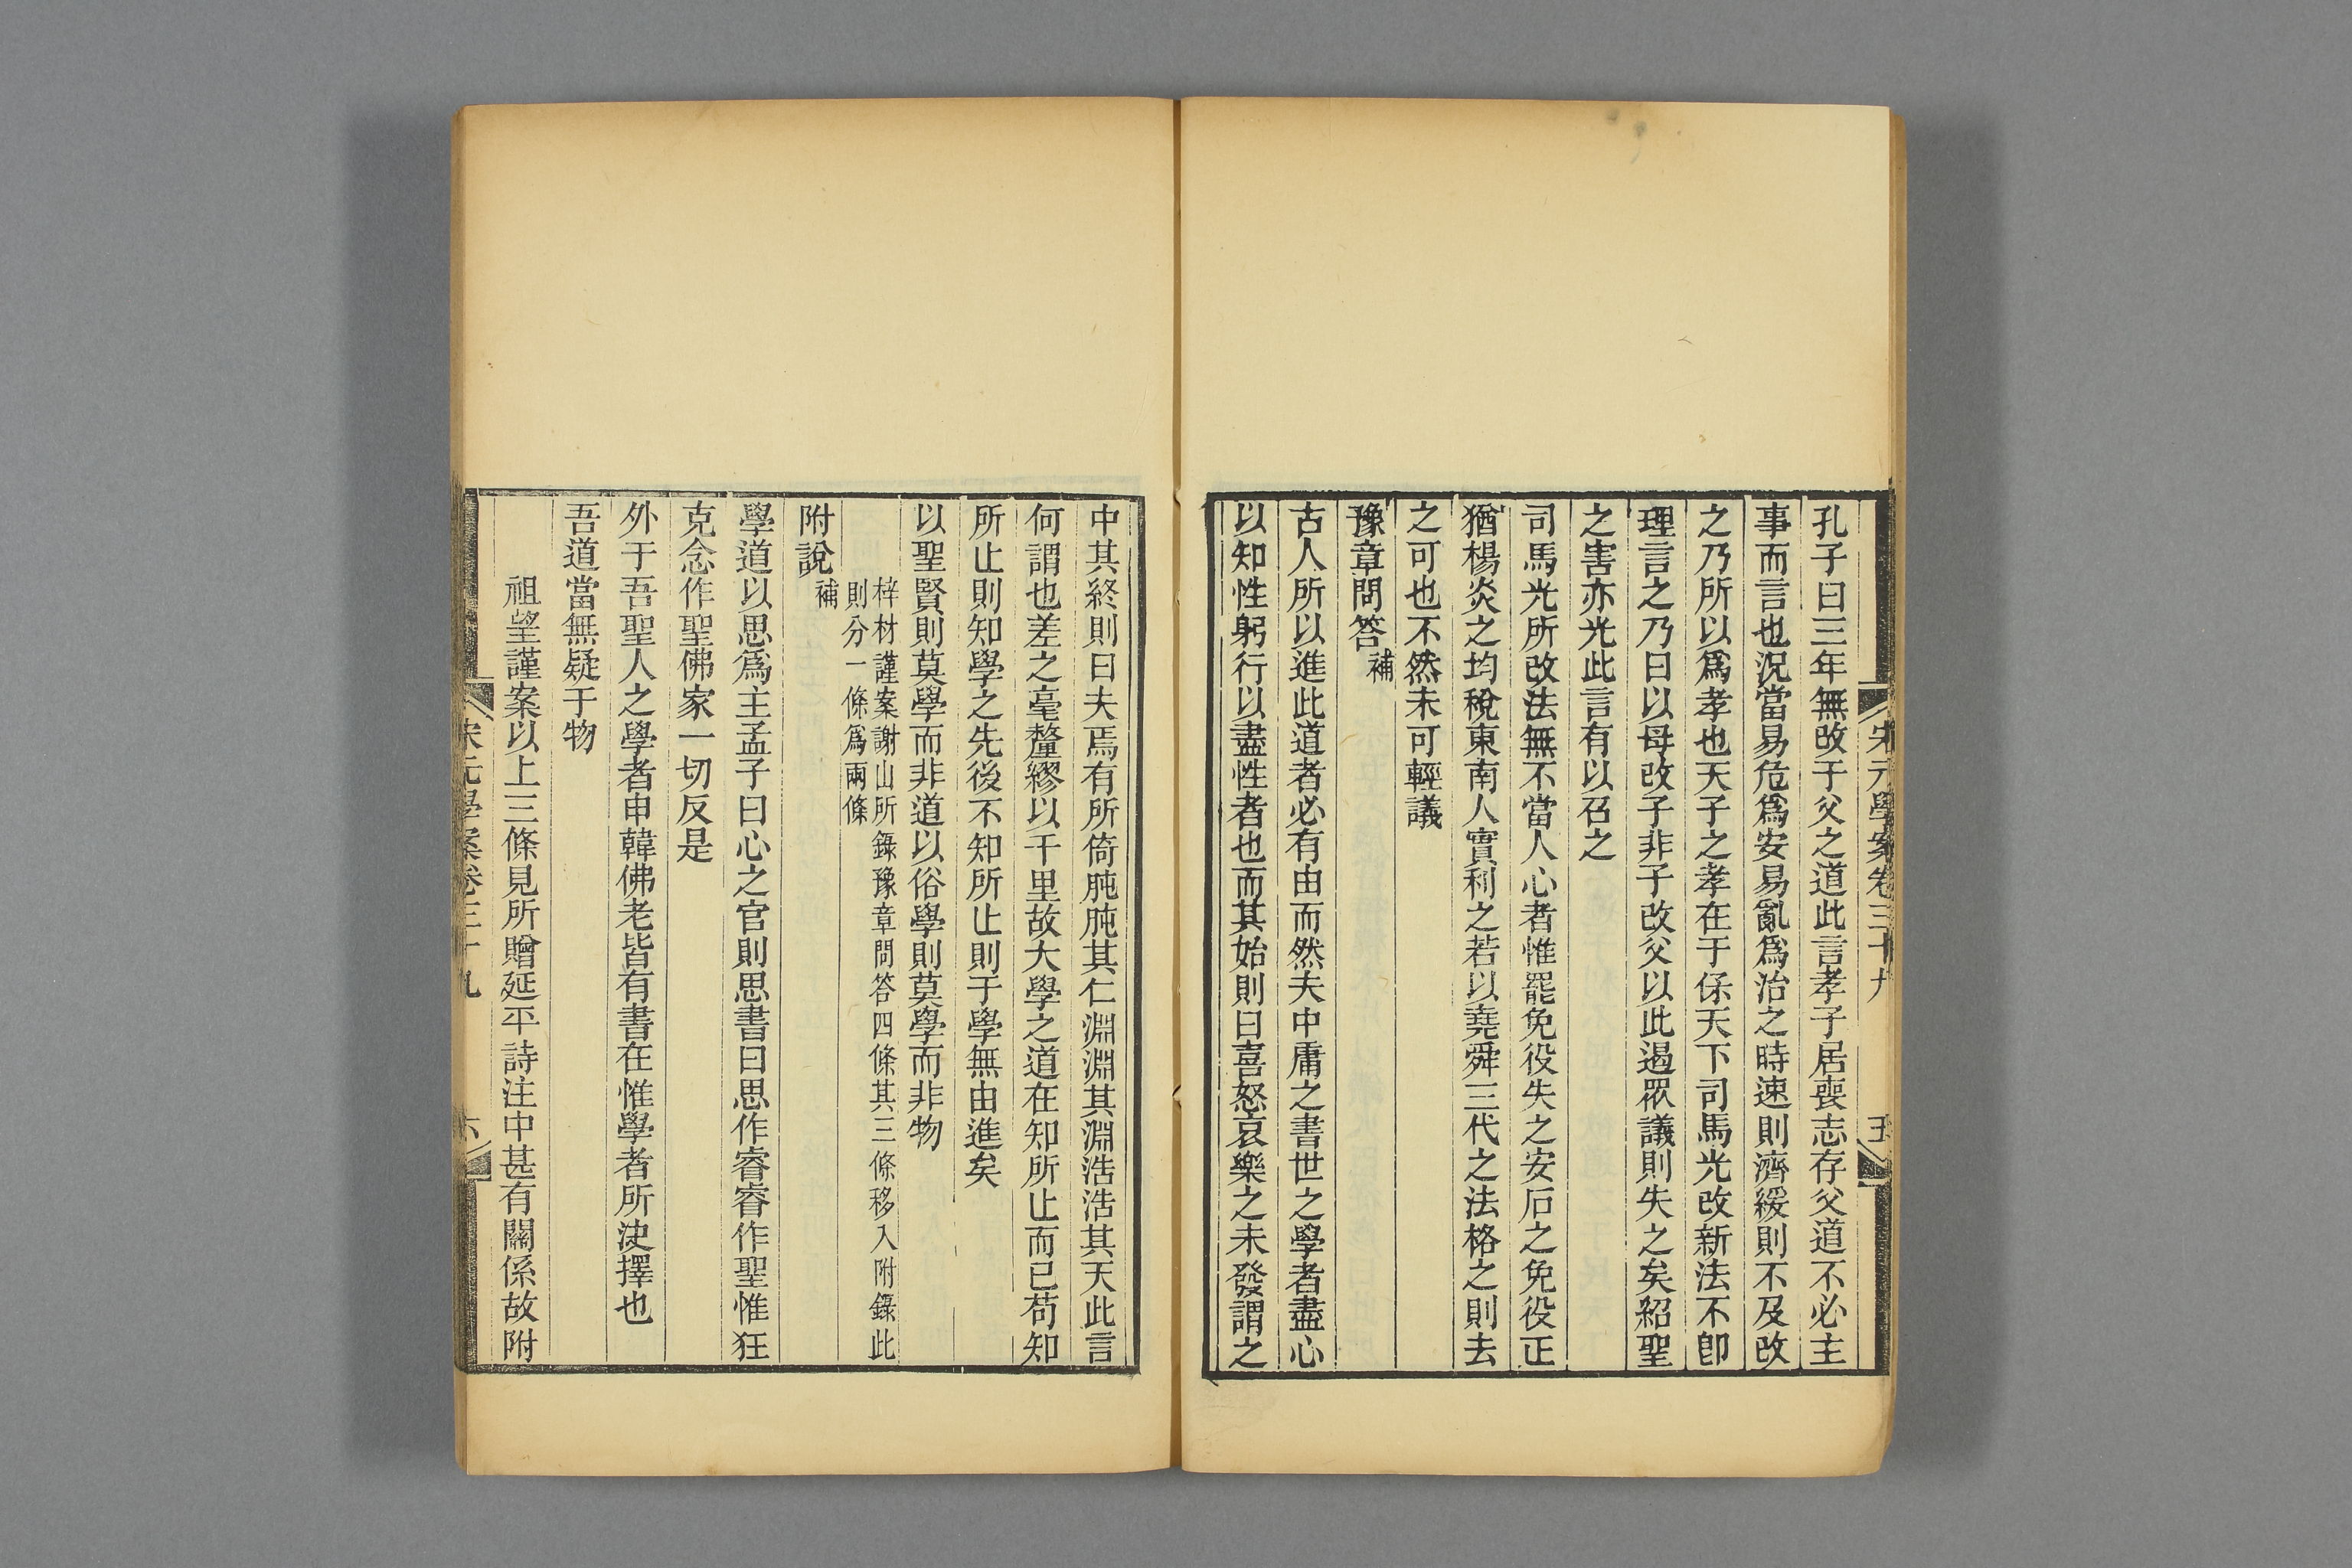 宋元學案卷三十九
五
孔子曰三年無改于父之道此言孝子居喪志存父道不必主
事而言也況當易危爲安易亂爲治之時速則濟緩則不及改
之乃所以爲孝也天子之孝在于保天下司馬光改新法不卽
理言之乃曰以母改子非子改父以此遏眾議則失之矣紹聖
之害亦光此言有以召之
司馬光所改法無不當人心者惟罷免役失之安石之免役正
猶楊炎之均稅東南人實利之若以堯舜三代之法格之則去
之可也不然未可輕議
豫章問答補
古人所以進此道者必有由而然夫中庸之書世之學者盡心
以知性躬行以盡性者也而其始則曰喜怒哀樂之未發謂之
中其終則曰夫焉有所倚肫肫其仁淵淵其淵浩浩其天此言
何謂也差之毫釐繆以千里故大學之道在知所止而已苟知
所止則知學之先後不知所止則于學無由進矣
以聖賢則莫學而非道以俗學則莫學而非物
梓材謹案謝山所錄豫章問答四條其三條移入附錄此
則分一條爲兩條
附說補
學道以思爲主孟子曰心之官則思書曰思作睿睿作聖惟狂
克念作聖佛家一切反是
外于吾聖人之學者申韓佛老皆有書在惟學者所決擇也
吾道當無疑于物
祖望謹案以上三條見所贈延平詩注中甚有關係故附
宋元學案卷三十九
六